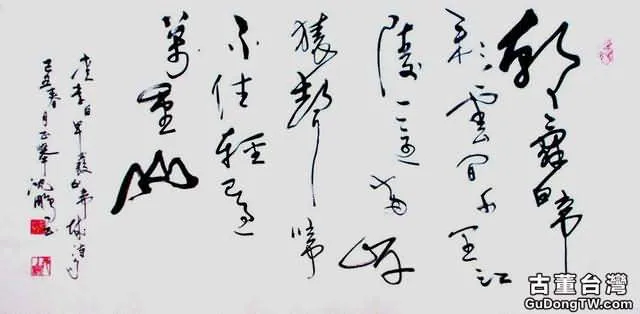 朝辭白帝
彩雲間千里江
陵一日還兩岸
猿聲啼
不住輕舟已過
萬重山
李白早發白帝城詩
己丑春月 沈鵬書
古董台灣
GuDongTW.com